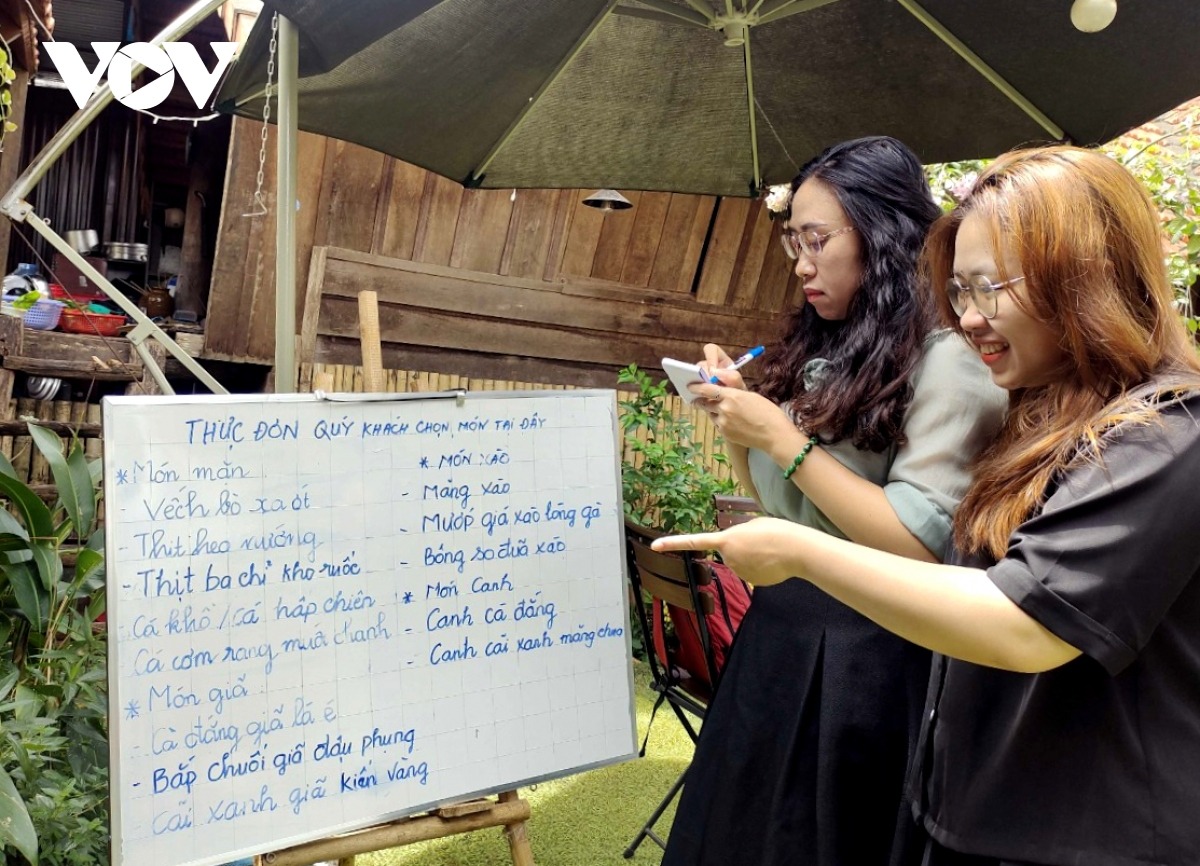 VOV
THỰC ĐƠN QUÝ KHÁCH CHỌN MÓN TẠI ĐÂY
* Món mặn
- Vếch bò xả ớt
- Thịt heo nướng
- Thịt ba chỉ kho ruốc
- Cá khô / Cá hấp chiên
Cá cơm rang muối chanh
* Món giã
- Cà đắng giã lá é
- Bắp chuối giã đậu phụng
- Cải xanh giã kiến vàng
* MÓN XÀO
- Măng xào
- Mướp giá xào lòng gà
- Bông so đũa xào
* Món Canh
- Canh cà đắng
- Canh cải xanh măng chua